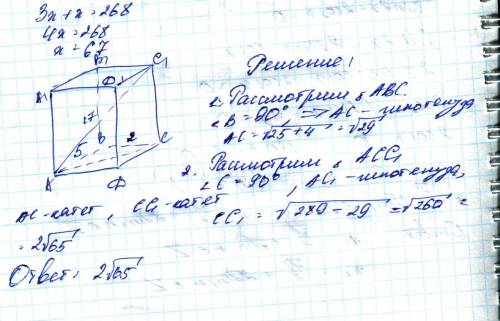 3x + x = 268
4x = 268
x = 67
Решение:
1. Рассмотрим Δ ABC.
∠B = 90° => AC - гипотенуза
AC = √25 + 4 = √29
2. Рассмотрим Δ ACC₁
∠C = 90°, AC₁ - гипотенуза,
AC - катет, CC₁ - катет
CC₁ = √289 - 29 = √260 =
= 2√65
Ответ: 2√65
C₁
17
B
5
2
C